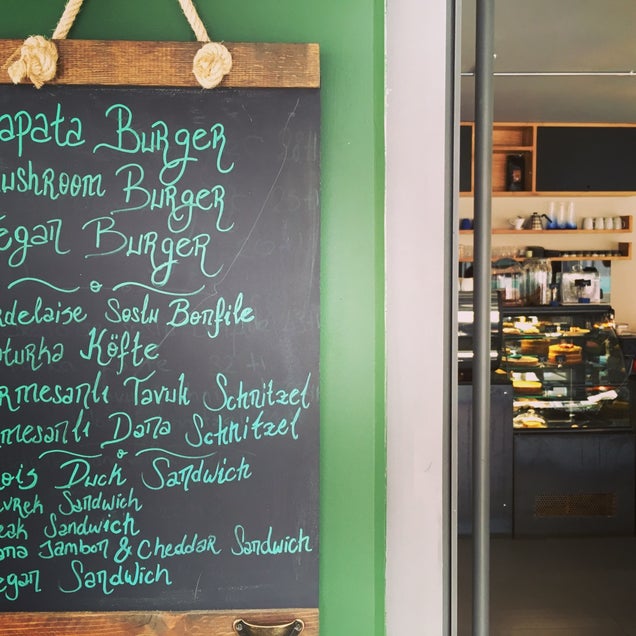 apata Burger
ushroom Burger
egan Burger
rdelaise Soslu Bonfile
aturka Köfte
rmesanlı Tavuk Schnitzel
mesanlı Dana Schnitzel
ois Duck Sandwich
vrek Sandwich
eak Sandwich
ana Jambon & Cheddar Sandwich
egan Sandwich